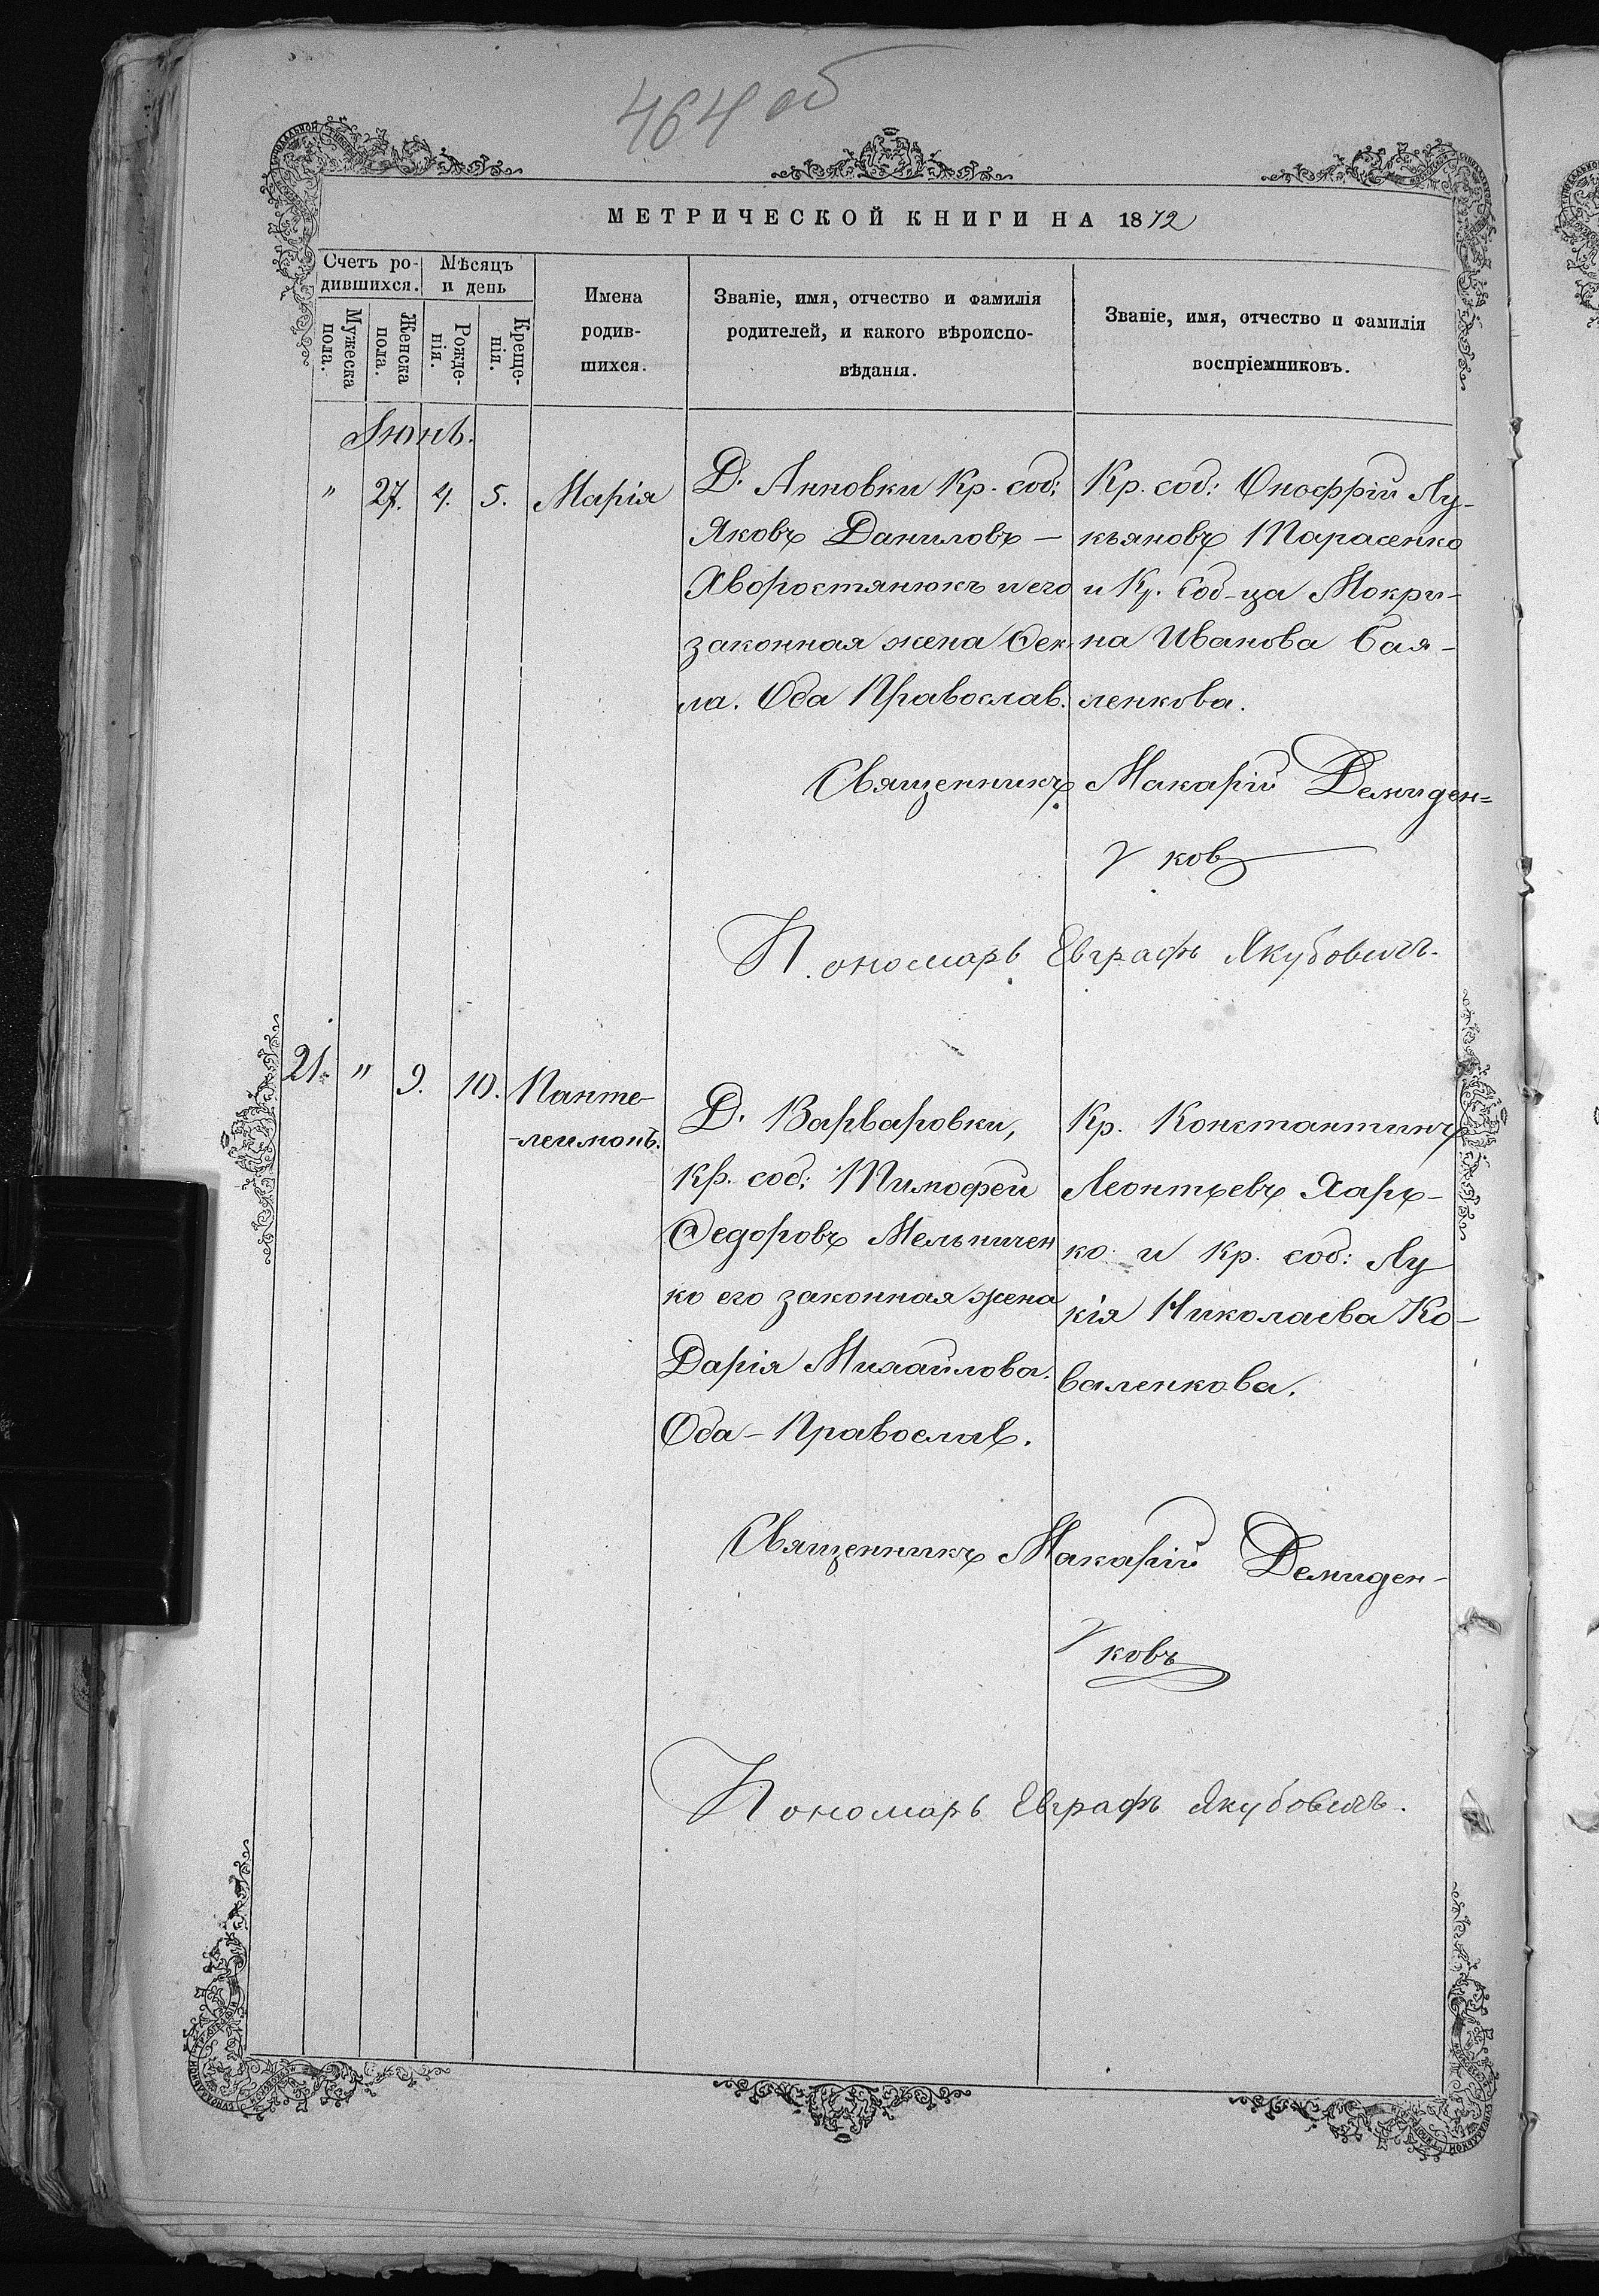 464 об
МЕТРИЧЕСКОЙ КНИГИ НА 1872
Счетъ ро-
дившихся.
Мѣсяцъ
и день
Мужеска
пола.
Женска
пола.
Рожде-
нія.
Креще-
нія.
Имена
родив-
шихся.
Званіе, имя, отчество и фамилія
родителей, и какого вѣроиспо-
вѣданія.
Званіе, имя, отчество и фамилія
воспріемниковъ.
Іюнь.
" 27. 4. 5. Марія
Д. Анновки Кр. соб:
Яковъ Даниловъ —
Хворостянюкъ и его
законная жена Ѳек-
ла. Оба Православ.
Кр. соб: Онофрій Лу-
кьяновъ Тарасенко
и Кр. Соб-ца Мокри-
на Иванова Бая-
ленкова.
Священникъ Макарій Демиден=
ков
Пономарь Евграфъ Якубовичъ.
21. " 9. 10. Панте-
-леимонъ.
Д. Варваровки,
Кр. соб: Тимофей
Ѳедоровъ Мельничен
ко его законная жена
Дарія Михайлова.
Оба - Православ.
Кр. Константинъ
Леонтьевъ Харь-
ко и Кр. соб: Лу
кія Николаева Ко-
валенкова.
Священникъ Макарій Демиден-
ковъ
Пономарь Евграфъ Якубовичъ.